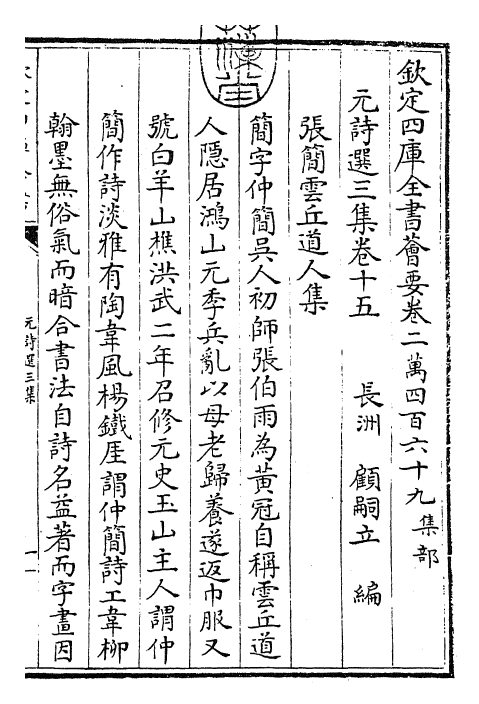 欽定四庫全書薈要卷二萬四百六十九 集部
元詩選三集卷十五 長洲 顧嗣立 編
張簡雲丘道人集
簡字仲簡吳人初師張伯雨為黃冠自稱雲丘道
人隱居鴻山元季兵亂以母老歸養遂返巾服又
號白羊山樵洪武二年召修元史玉山主人謂仲
簡作詩淡雅有陶韋風楊鐵厓謂仲簡詩工韋柳
翰墨無俗氣而暗合書法自詩名益著而字畫因
元詩選三集